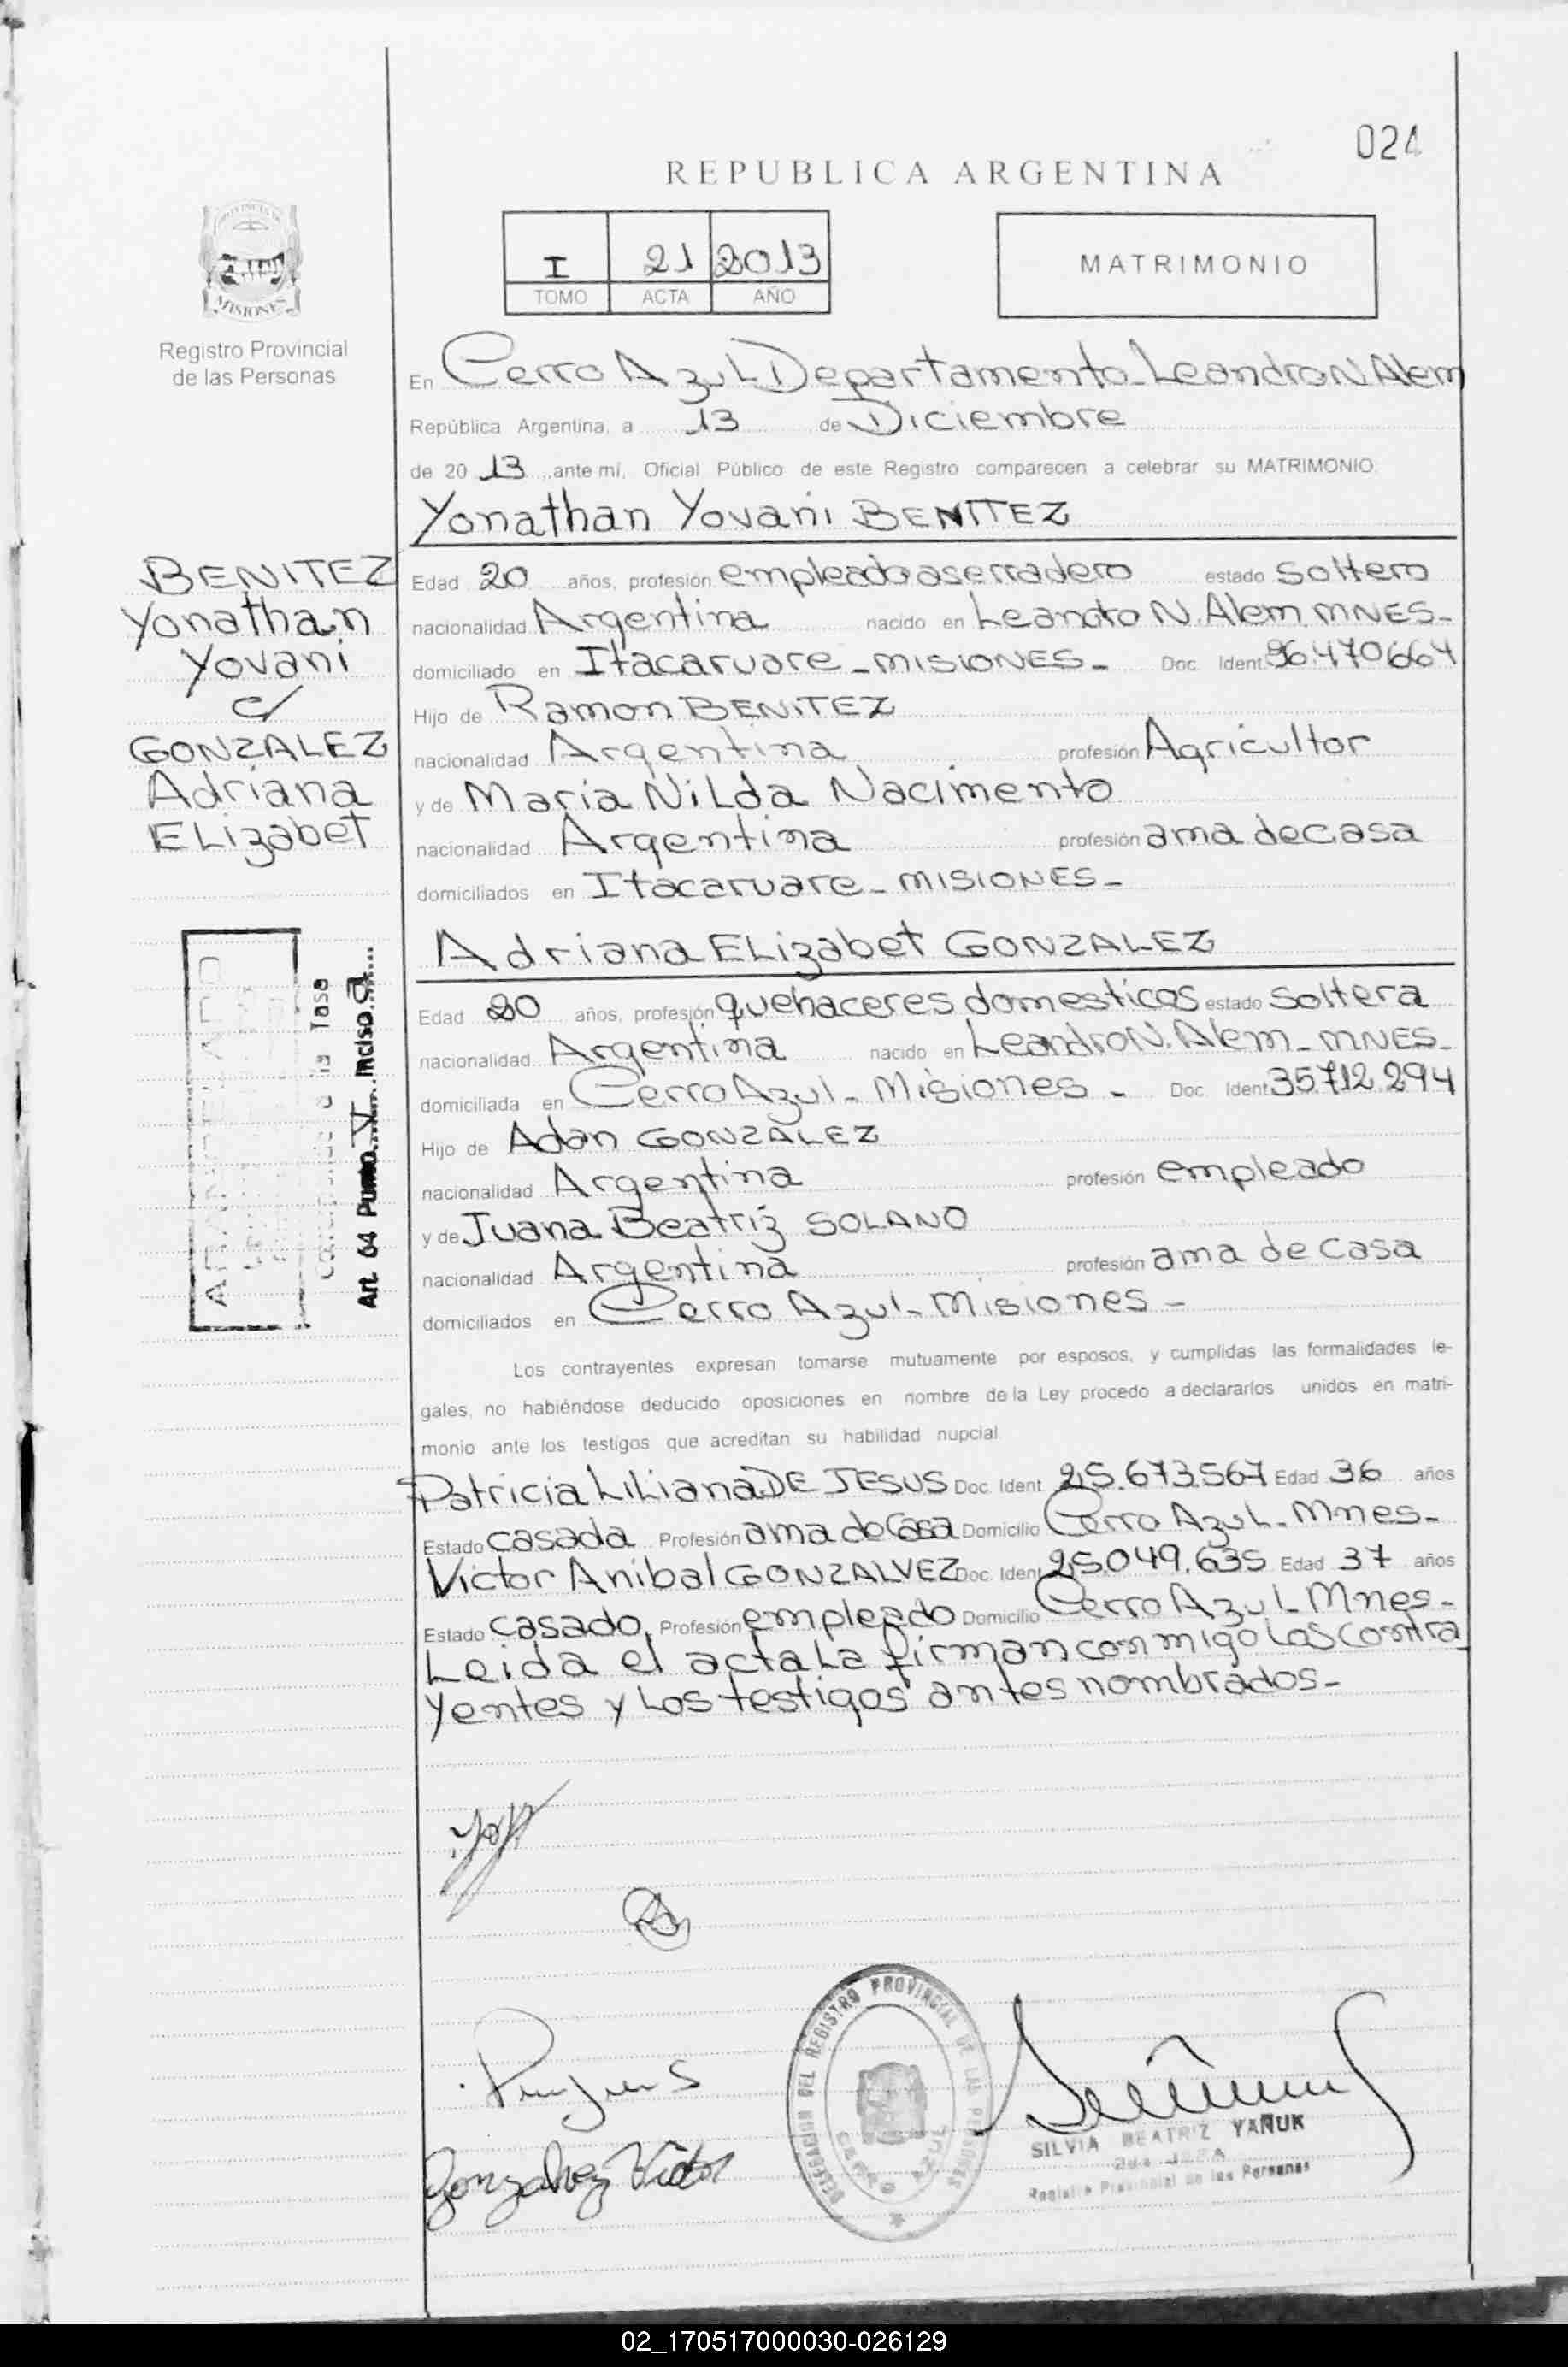 024
REPUBLICA ARGENTINA
I 21 2013
TOMO ACTA AÑO
MATRIMONIO
MISIONES
Registro Provincial
de las Personas
En Cerro Azul Departamento Leandro N Alem
República Argentina, a 13 de Diciembre
de 20 13 ante mí, Oficial Público de este Registro comparecen a celebrar su MATRIMONIO
Yonathan Yovani BENITEZ
BENITEZ
Yonathan
Yovani
c/
GONZALEZ
Adriana
ELizabet
Edad 20 años, profesión empleado aserradero estado soltero
nacionalidad Argentina nacido en Leandro N. Alem MNES-
domiciliado en Itacaruare - MISIONES - Doc. Ident. 36.470664
Hijo de Ramon BENITEZ
nacionalidad Argentina profesión Agricultor
y de Maria NiLda Nacimento
nacionalidad Argentina profesión ama de casa
domiciliados en Itacaruare - MISIONES -
Adriana ELizabet GONZALEZ
Edad 20 años, profesión quehaceres domesticos estado soltera
nacionalidad Argentina nacido en Leandro N. Alem - MNES-
domiciliada en Cerro Azul - Misiones - Doc. Ident 35.712.294
Hijo de Adan GONZALEZ
nacionalidad Argentina profesión empleado
y de Juana Beatriz SOLANO
nacionalidad Argentina profesión ama de casa
domiciliados en Cerro Azul - Misiones -
a la Tasa
Art. 64 Punto V Inciso a
Los contrayentes expresan tomarse mutuamente por esposos, y cumplidas las formalidades le-
gales, no habiéndose deducido oposiciones en nombre de la Ley procedo a declararlos unidos en matri-
monio ante los testigos que acreditan su habilidad nupcial.
Patricia Liliana DE JESUS Doc. Ident. 25.673.567 Edad 36 años
Estado casada Profesión ama de Casa Domicilio Cerro Azul - Mnes-
Victor Anibal GONZALVEZ Doc. Ident 25.049.635 Edad 37 años
Estado casado, Profesión empleado Domicilio Cerro Azul Mnes-
Leida el acta La firman conmigo Los contra
yentes y Los testigos antes nombrados-
Gonzalvez Victor
DELEGACION DEL REGISTRO PROVINCIAL DE LAS PERSONAS
CERRO AZUL
SILVIA BEATRIZ YAÑUK
Registro Provincial de las Personas
02_170517000030-026129